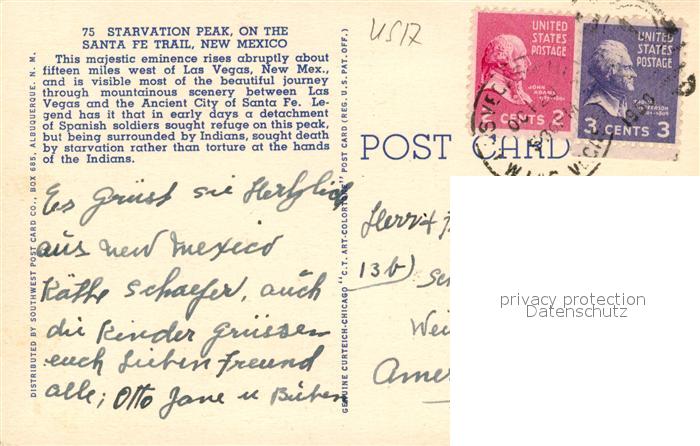 75 STARVATION PEAK, ON THE
SANTA FE TRAIL, NEW MEXICO
This majestic eminence rises abruptly about
fifteen miles west of Las Vegas, New Mex.,
and is visible most of the beautiful journey
through mountainous scenery between Las
Vegas and the Ancient City of Santa Fe. Le-
gend has it that in early days a detachment
of Spanish soldiers sought refuge on this peak,
but being surrounded by Indians, sought death
by starvation rather than torture at the hands
of the Indians.
Es Grüst sie Hertzlich
aus new mexico
Käthe Schaefer, auch
die Kinder Grüssen
euch lieben freund
alle; Otto Jane u Buben
DISTRIBUTED BY SOUTHWEST POST CARD CO., BOX 685, ALBUQUERQUE, N. M.
GENUINE CURTEICH-CHICAGO "C.T. ART-COLORTONE" POST CARD (REG. U.S. PAT. OFF.)
US17
POST CARD
UNITED
STATES
POSTAGE
JOHN
ADAMS
2 CENTS 2
UNITED
STATES
POSTAGE
JEFFERSON
3 CENTS 3
Herr +
13b)
Wei
Amer
privacy protection
Datenschutz